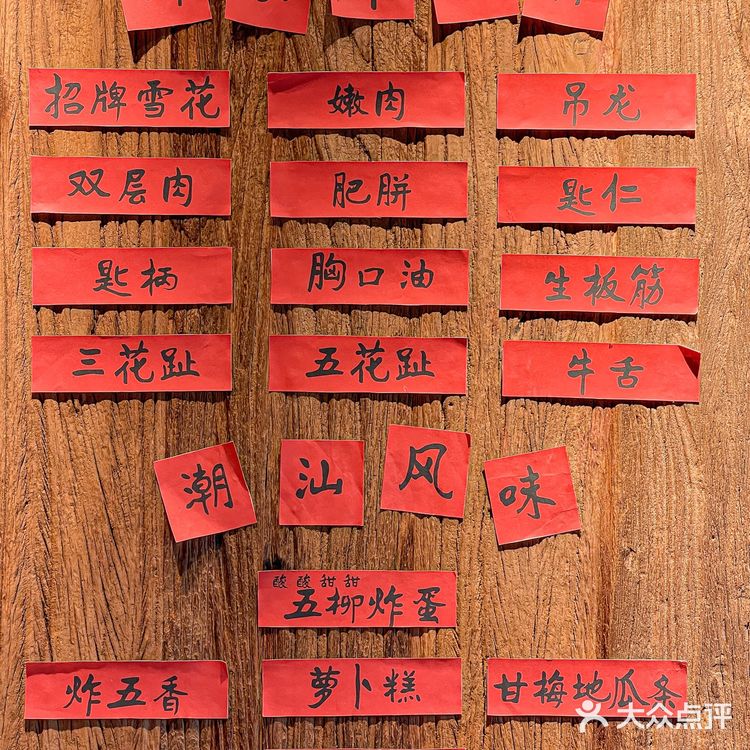 招牌雪花 嫩肉 吊龙
双层肉 肥胼 匙仁
匙柄 胸口油 生板筋
三花趾 五花趾 牛舌
潮汕风味
酸酸甜甜
五柳炸蛋
炸五香 萝卜糕 甘梅地瓜条
大众点评